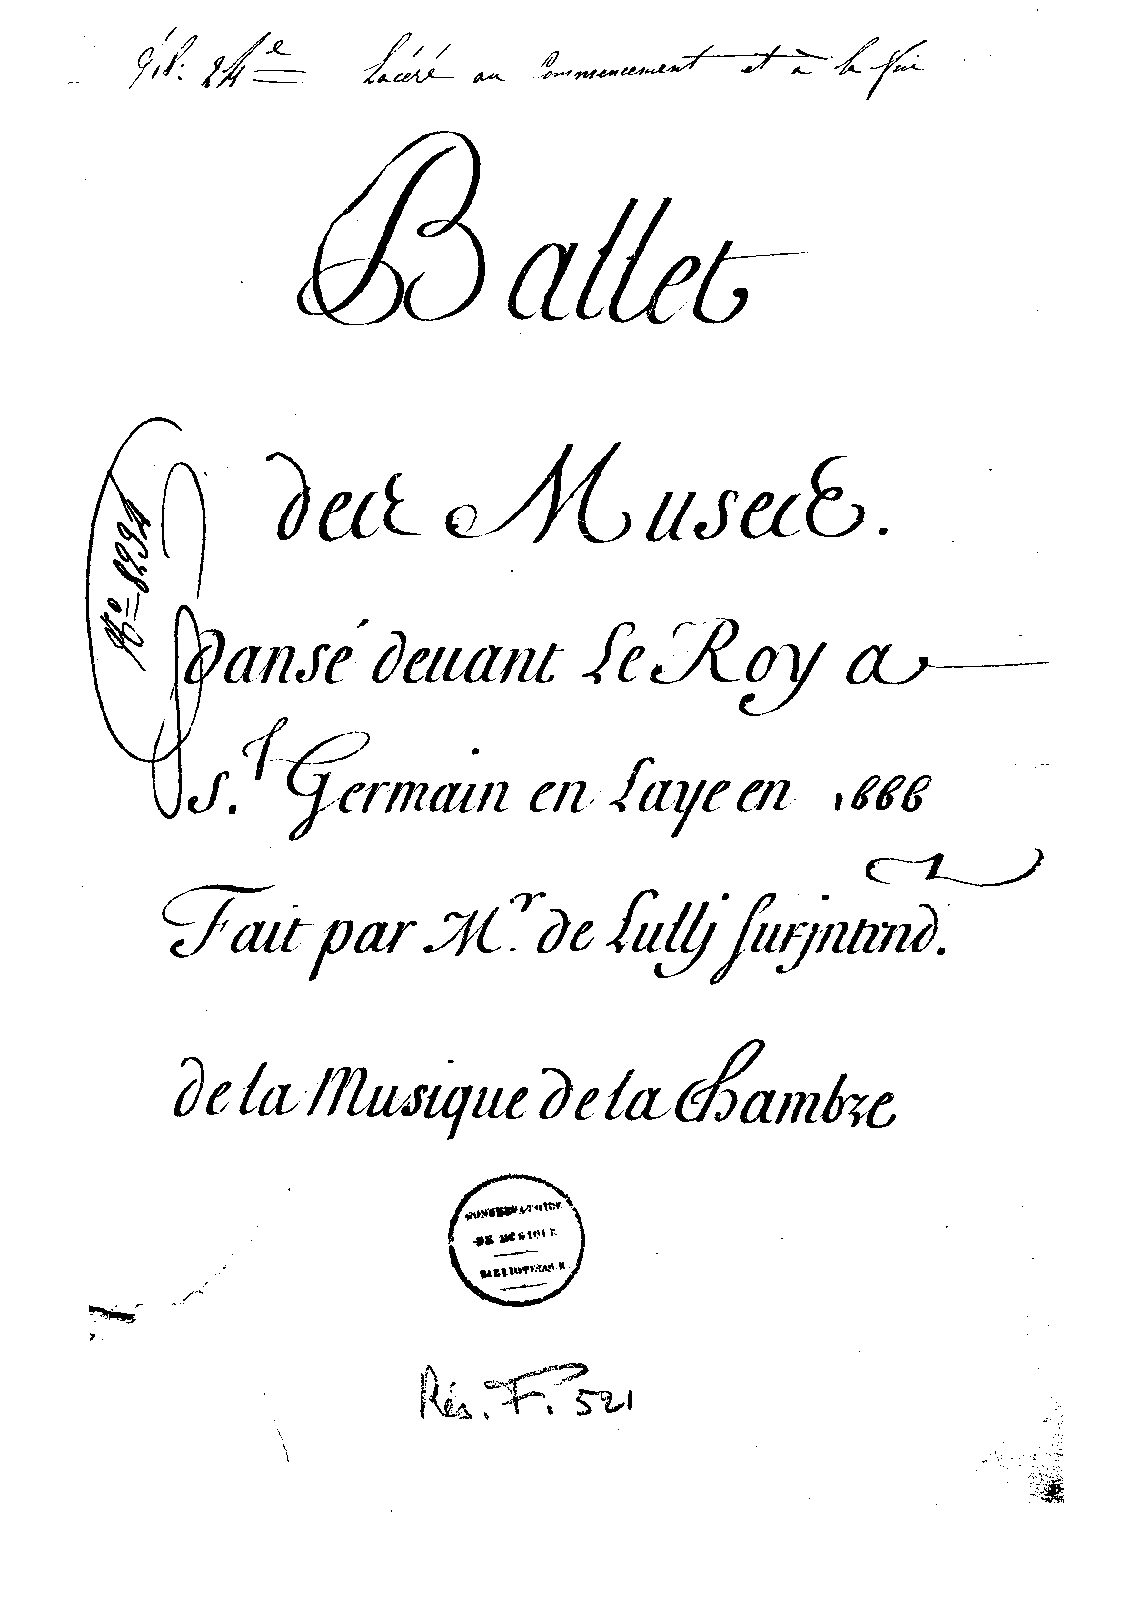 24e Lacéré au Commencement et à la fin
Ballet
des Muses.
dansé deuant Le Roy a
St. Germain en Laye en 1666
Fait par Mr. de Lully surjntend.
de la Musique de la Chambre
No 8294
CONSERVATOIRE
DE MUSIQUE
BIBLIOTHEQUE
Rés. F. 521